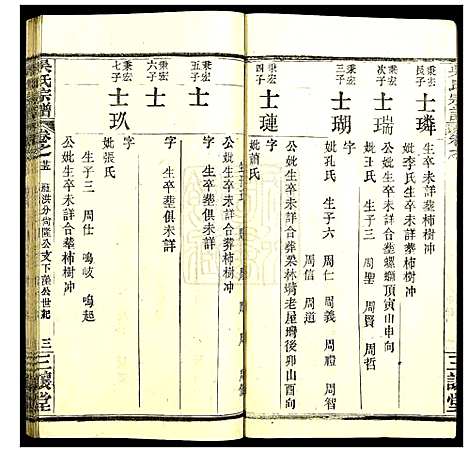 吳氏宗譜
秉宏
長子
士璘
生卒未詳葬柿樹冲
妣李氏生卒未詳合葬柿樹冲
秉宏
次子
士瑞
公妣生卒未詳合葬螺螄頂寅山申向
妣丑氏 生子三 周聖 周賢 周哲
秉宏
三子
士瑚
字
妣孔氏 生子六 周仁 周義 周禮 周智
周信 周道
秉宏
四子
士璉
字
公妣生卒未詳合葬梁林塆老屋後卯山酉向
妣蕭氏
秉宏
五子
士
字
生卒葬俱未詳
秉宏
六子
士
字
生卒葬俱未詳
秉宏
七子
士玖
公妣生卒未詳合葬柿樹冲
妣張氏
生子三 周仕 鳴岐 鳴起
吳氏宗譜
洪分尚隆公支下 公世紀
三讓堂
三讓堂